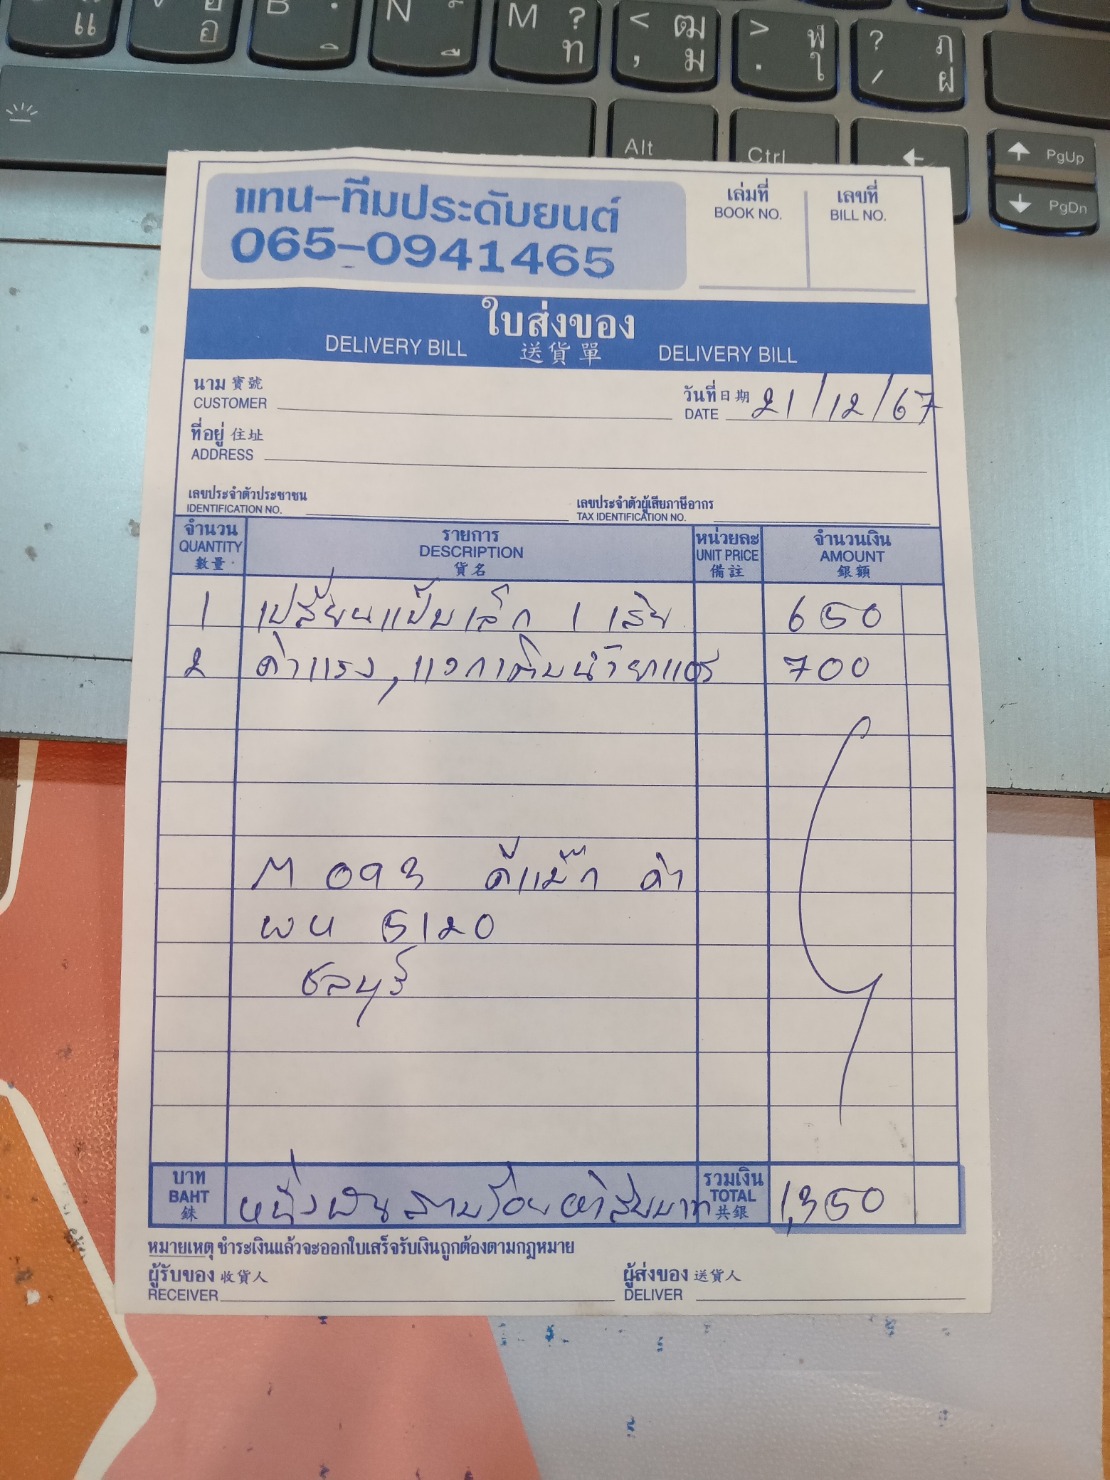 แ
N
M ?
ท
< ฒ
, ม
> ฬ
. ใ
? ฦ
/ ฝ
Alt
Ctrl
PgUp
PgDn
แทน-ทีมประดับยนต์
065-0941465
เล่มที่
BOOK NO.
เลขที่
BILL NO.
ใบส่งของ
DELIVERY BILL 送貨單 DELIVERY BILL
นาม 寶號
CUSTOMER
วันที่ 日期
DATE 21/12/67
ที่อยู่ 住址
ADDRESS
เลขประจำตัวประชาชน
IDENTIFICATION NO.
เลขประจำตัวผู้เสียภาษีอากร
TAX IDENTIFICATION NO.
จำนวน รายการ หน่วยละ จำนวนเงิน
QUANTITY DESCRIPTION UNIT PRICE AMOUNT
數量 貨名 備註 銀額
1 เปลี่ยนแป๊บเล็ก 1 เส้น 650
2 ค่าแรง, แวคเติมน้ำยาแอร์ 700
M 093 ดีแม๊ก ดำ
ผน 5120
ชลบุรี
บาท
BAHT
銖
หนึ่งพันสามร้อยห้าสิบบาท
รวมเงิน
TOTAL
共銀
1,350
หมายเหตุ ชำระเงินแล้วจะออกใบเสร็จรับเงินถูกต้องตามกฎหมาย
ผู้รับของ 收貨人
RECEIVER
ผู้ส่งของ 送貨人
DELIVER